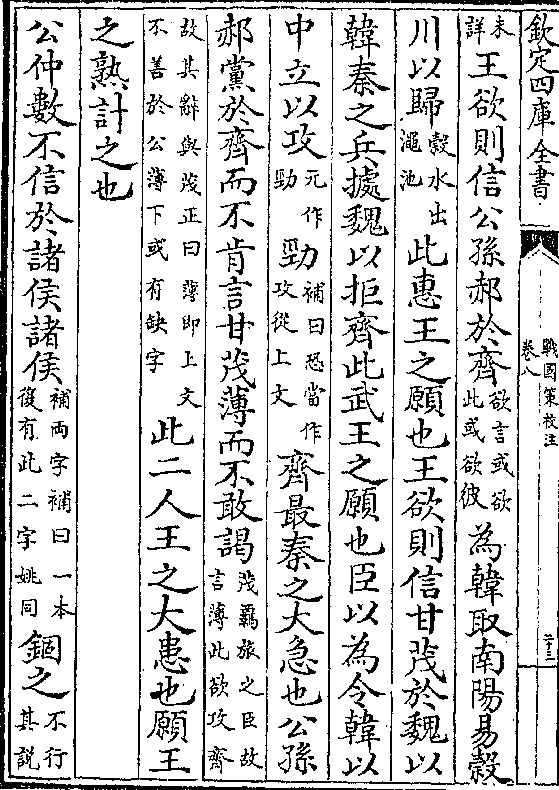 欽定四庫全書
戰國策校注
卷八
二十三
未詳王欲則信公孫郝於齊欲言或欲此或欲彼為韓取南陽易穀
川以歸穀水出澠池此惠王之願也王欲則信甘茂於魏以
韓秦之兵據魏以拒齊此武王之願也臣以為令韓以
中立以攻元作勁勁補曰恐當作攻從上文齊最秦之大急也公孫
郝黨於齊而不肯言甘茂薄而不敢謁茂羈旅之臣故言薄此欲攻齊
故其辭與茂正曰薄即上文不善於公薄下或有缺字此二人王之大患也願王
之熟計之也
公仲數不信於諸侯諸侯補兩字補曰一本復有此二字姚同錮之不行其説